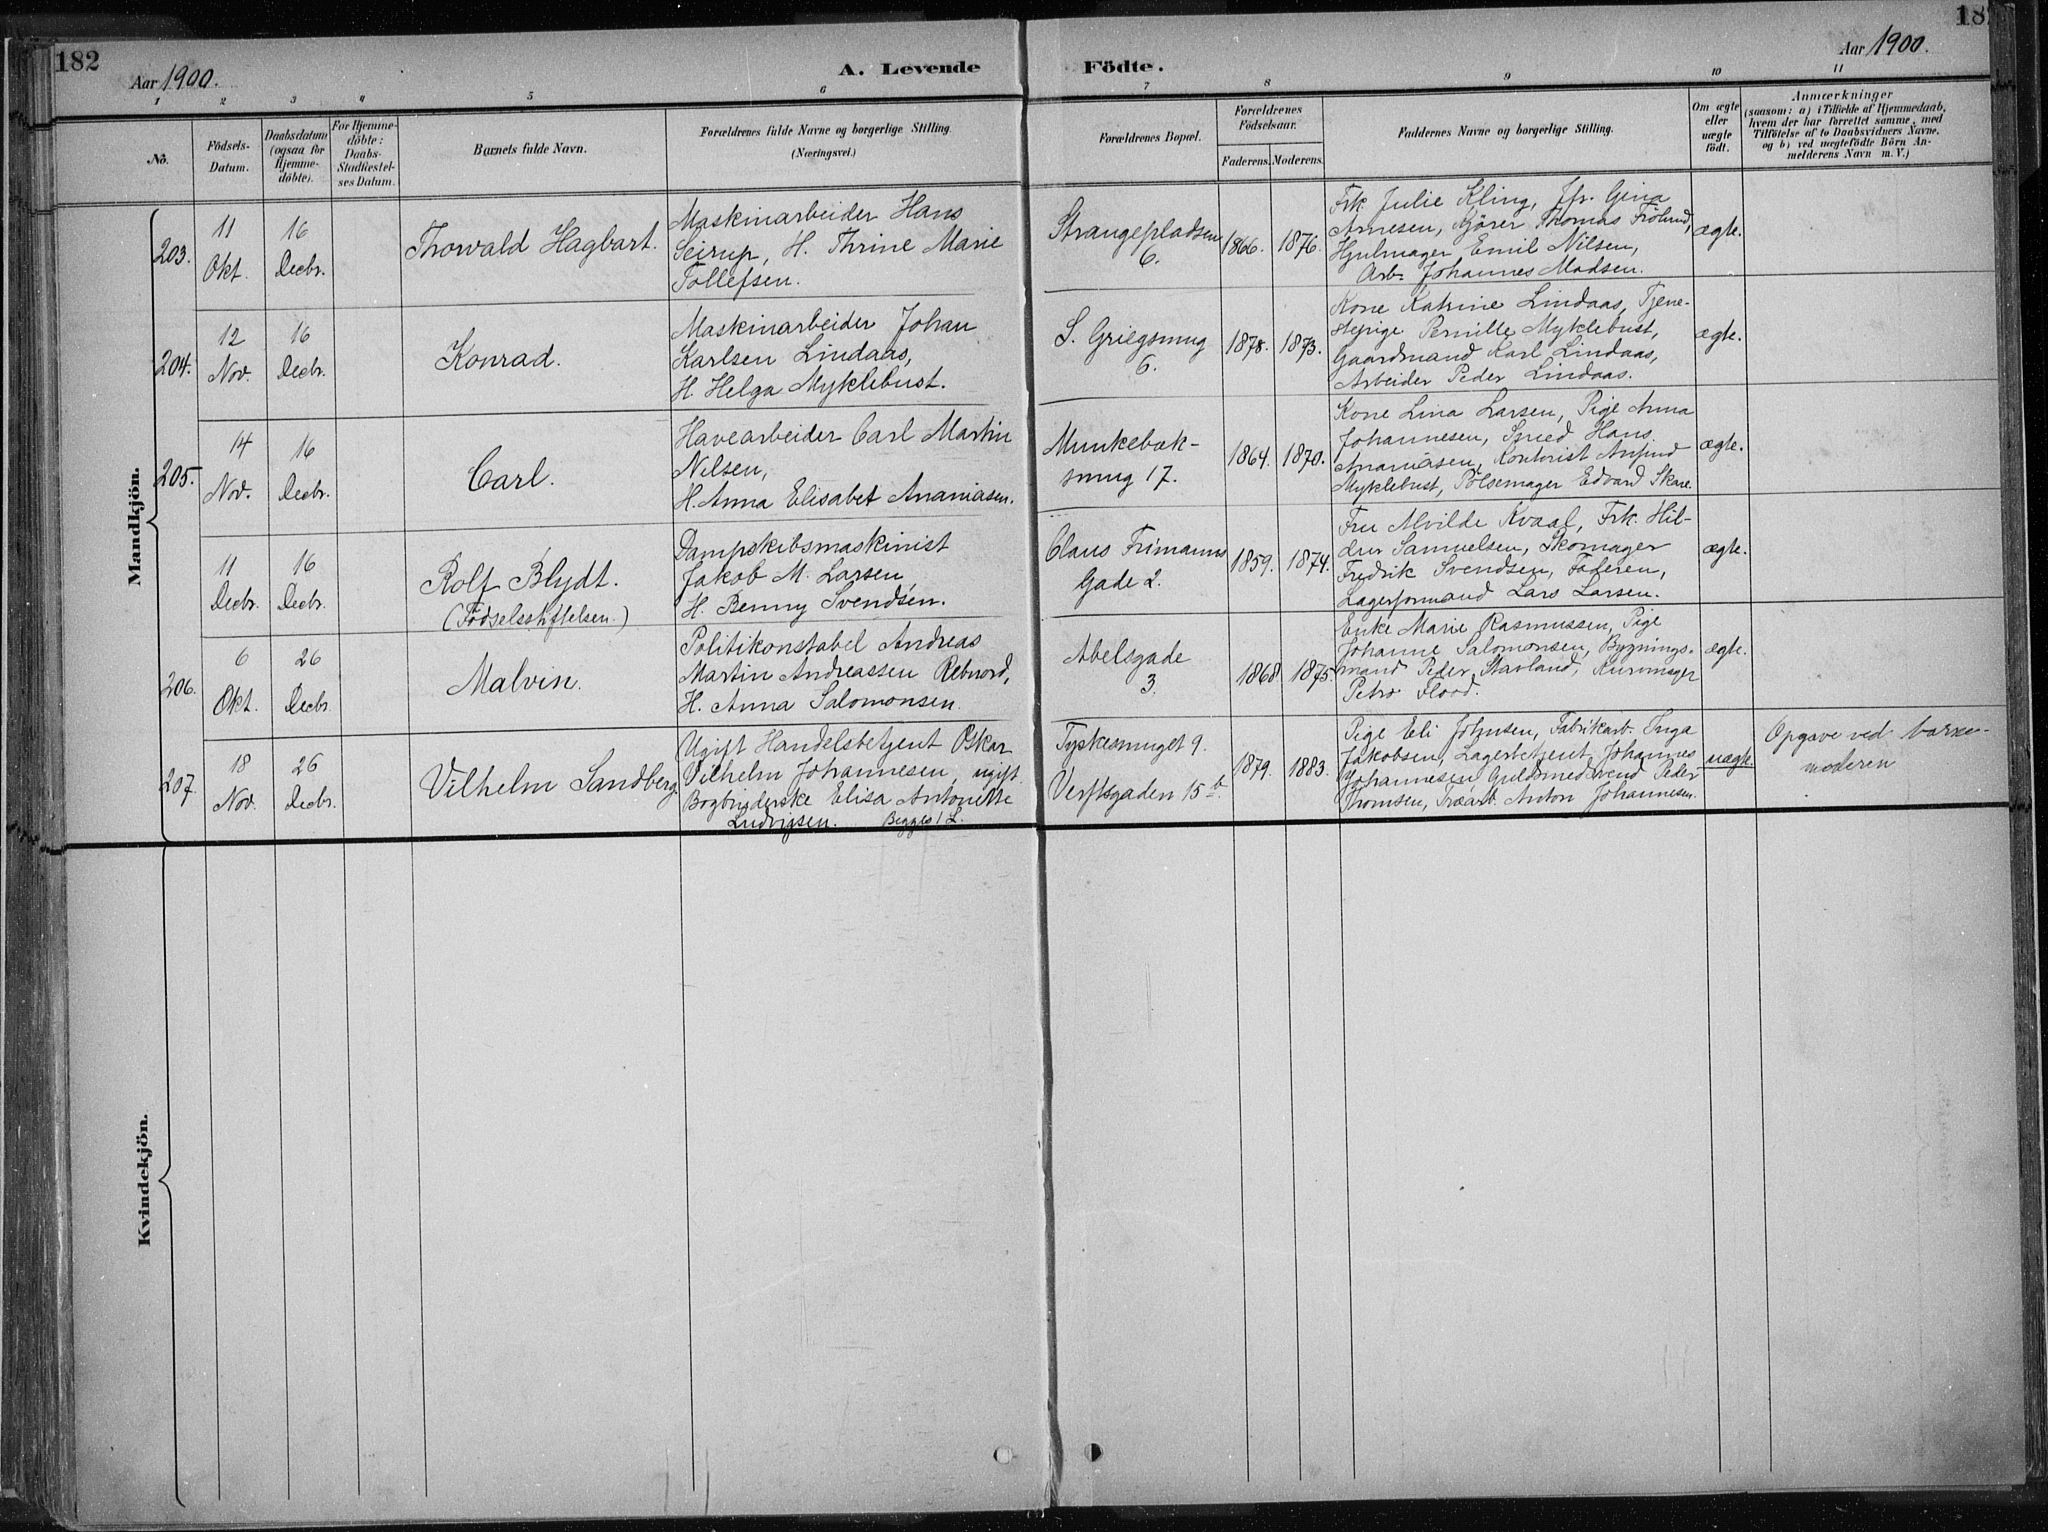 182
Aar 1900.
A. Levende
Födte.
Aar 1900.
18
1 2 3 4 5 6 7 8 9 10 11
No.
Födsels-
Datum.
Daabsdatum
(ogsaa for
Hjemme-
döbte).
For Hjemme-
döbte:
Daabs-
Stadfæstel-
ses Datum.
Barnets fulde Navn.
Forældrenes fulde Navne og borgerlige Stilling.
(Næringsvei.)
Forældrenes Bopæl.
Forældrenes
Födselsaar.
Faderens. Moderens.
Faddernes Navne og borgerlige Stilling.
Om ægte
eller
uægte
födt.
Anmærkninger
(saasom: a) i Tilfælde af Hjemmedaab,
hvem der har forrettet samme, med
Tilföielse af to Daabsvidners Navne,
og b) ved uægtefödte Börn An-
melderens Navn m. V.)
Mandkjön.
203.
11
Okt.
16
Decbr.
Thorvald Hagbart.
Maskinarbeider Hans
Seirup, H. Thrine Marie
Tollefsen.
Strangepladsen
6.
1866.
1876.
Frk. Julie Kling, Jfr. Gina
Arnesen, Kjörer Thomas Frölund,
Hjulmager Emil Nilsen,
Arb. Johannes Madsen.
ægte.
204.
12
Nov.
16
Decbr.
Konrad.
Maskinarbeider Johan
Karlsen Lindaas,
H. Helga Myklebust.
S. Griegsmug
6.
1878.
1873.
Kone Katrine Lindaas, Tjene-
stepige Pernille Myklebust,
Gaardmand Karl Lindaas,
Arbeider Peder Lindaas.
ægte.
205.
14
Nov.
16
Decbr.
Carl.
Havearbeider Carl Martin
Nilsen,
H. Anna Elisabet Ananiasen.
Munkebæk-
smug 17.
1864.
1870.
Kone Lina Larsen, Pige Anna
Johannesen, Smed Hans
Ananiasen, Kontorist Anfind
Myklebust, Pölsemager Edvard Skare.
ægte.
11
Decbr.
16
Decbr.
Rolf Blydt.
(Födselsstiftelsen.)
Dampskibsmaskinist
Jakob M. Larsen,
H. Benny Svendsen.
Claus Frimanns
Gade 2.
1859.
1874.
Fru Alvilde Kvaal, Frk. Hil-
dur Samuelsen, Skomager
Fredrik Svendsen, Faderen,
Lagerformand Lars Larsen.
ægte.
206.
6
Okt.
26
Decbr.
Malvin.
Politikonstabel Andreas
Martin Andreassen Rebnord,
H. Anna Salomonsen.
Abelsgade
3.
1868
1875.
Enke Marie Rasmussen, Pige
Johanne Salomonsen, Bygnings-
mand Peder Stavland, Kurvmager
Petro Flood.
ægte.
207.
18
Nov.
26
Decbr.
Vilhelm Sandberg
Ugift Handelsbetjent Oskar
Vilhelm Johannesen, ugift
Bogbinderske Elisa Antonette
Ludvigsen. Begges 1 L.
Tyskesmuget 9.
Verftsgaden 15 b.
1879.
1883.
Pige Eli Johnsen, Fabrikarb. Inga
Jakobsen, Lagerbetjent Johannes
Johannesen, Guldsmedsvend Peder
Thomsen, Træarb. Anton Johannesen.
uægte.
Opgave ved barne-
moderen
Kvindekjön.